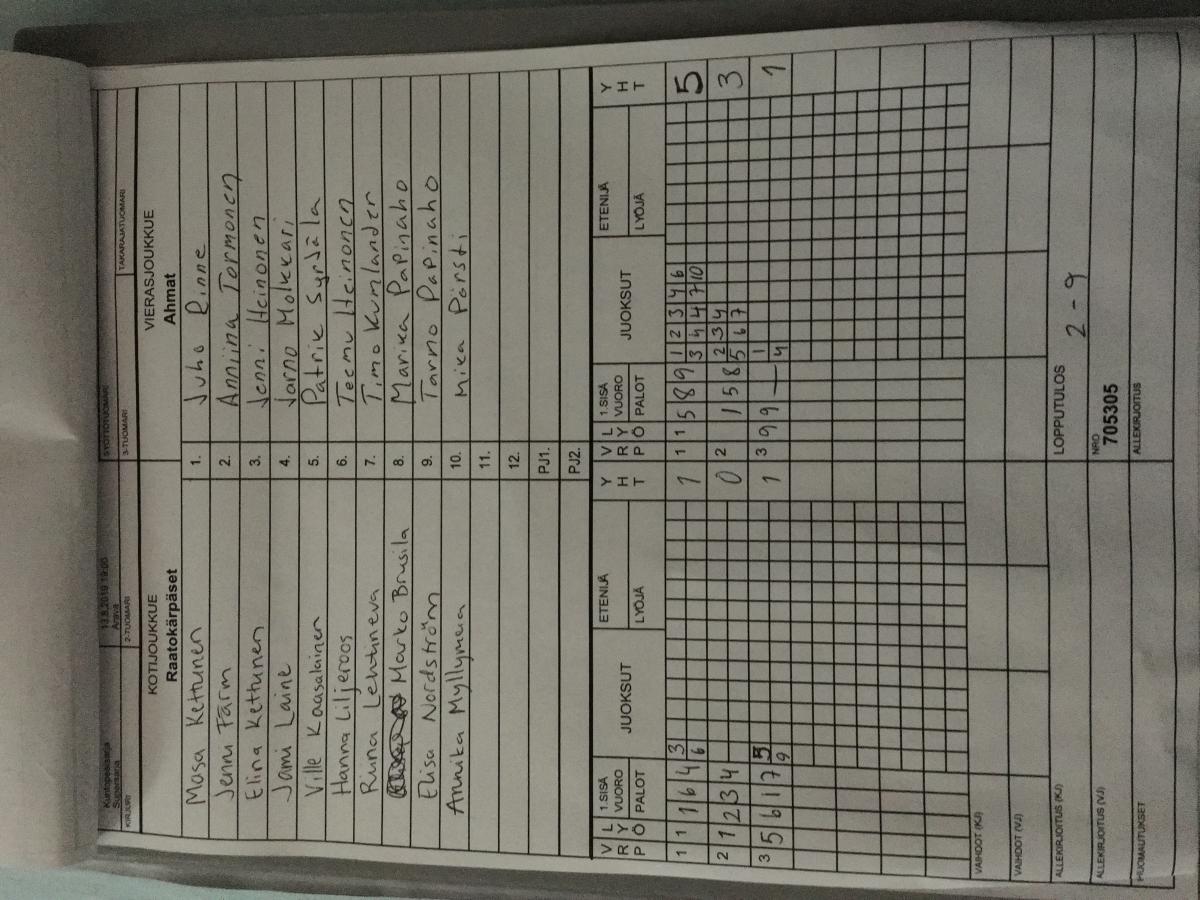 Kuntopesäsarja 13.8.2019 19:00
Supersarja Areva
KIRJURI 2-TUOMARI SYÖTTÖTUOMARI 3-TUOMARI TAKARAJATUOMARI
KOTIJOUKKUE VIERASJOUKKUE
Raatokärpäset Ahmat
Masa Kettunen 1. Juho Rinne
Jenni Färm 2. Anniina Tormonen
Elina Kettunen 3. Jenni Heinonen
Jami Laine 4. Jarno Molkkari
Ville Kaasalainen 5. Patrik Syrjälä
Hanna Liljeroos 6. Teemu Heinonen
Riina Lehtineva 7. Timo Kumlander
Marko Brusila 8. Marika Papinaho
Elisa Nordström 9. Tarmo Papinaho
Annika Myllymaa 10. Mika Pärsti
11.
12.
PJ1.
PJ2.
V L 1.SISÄ ETENIJÄ Y V L 1.SISÄ ETENIJÄ Y
R Y VUORO JUOKSUT H R Y VUORO JUOKSUT H
P Ö PALOT LYÖJÄ T P Ö PALOT LYÖJÄ T
1 1 1 6 4 3 1 1 1 5 8 9 1 2 3 4 6 5
6 3 4 4 7 10
2 1 2 3 4 0 2 1 5 8 2 3 4 3
5 6 7
3 5 6 1 7 5 1 3 9 9 — 1 1
9 4
VAIHDOT (KJ)
VAIHDOT (VJ)
ALLEKIRJOITUS (KJ) LOPPUTULOS 2 - 9
ALLEKIRJOITUS (VJ) NRO 705305
HUOMAUTUKSET ALLEKIRJOITUS